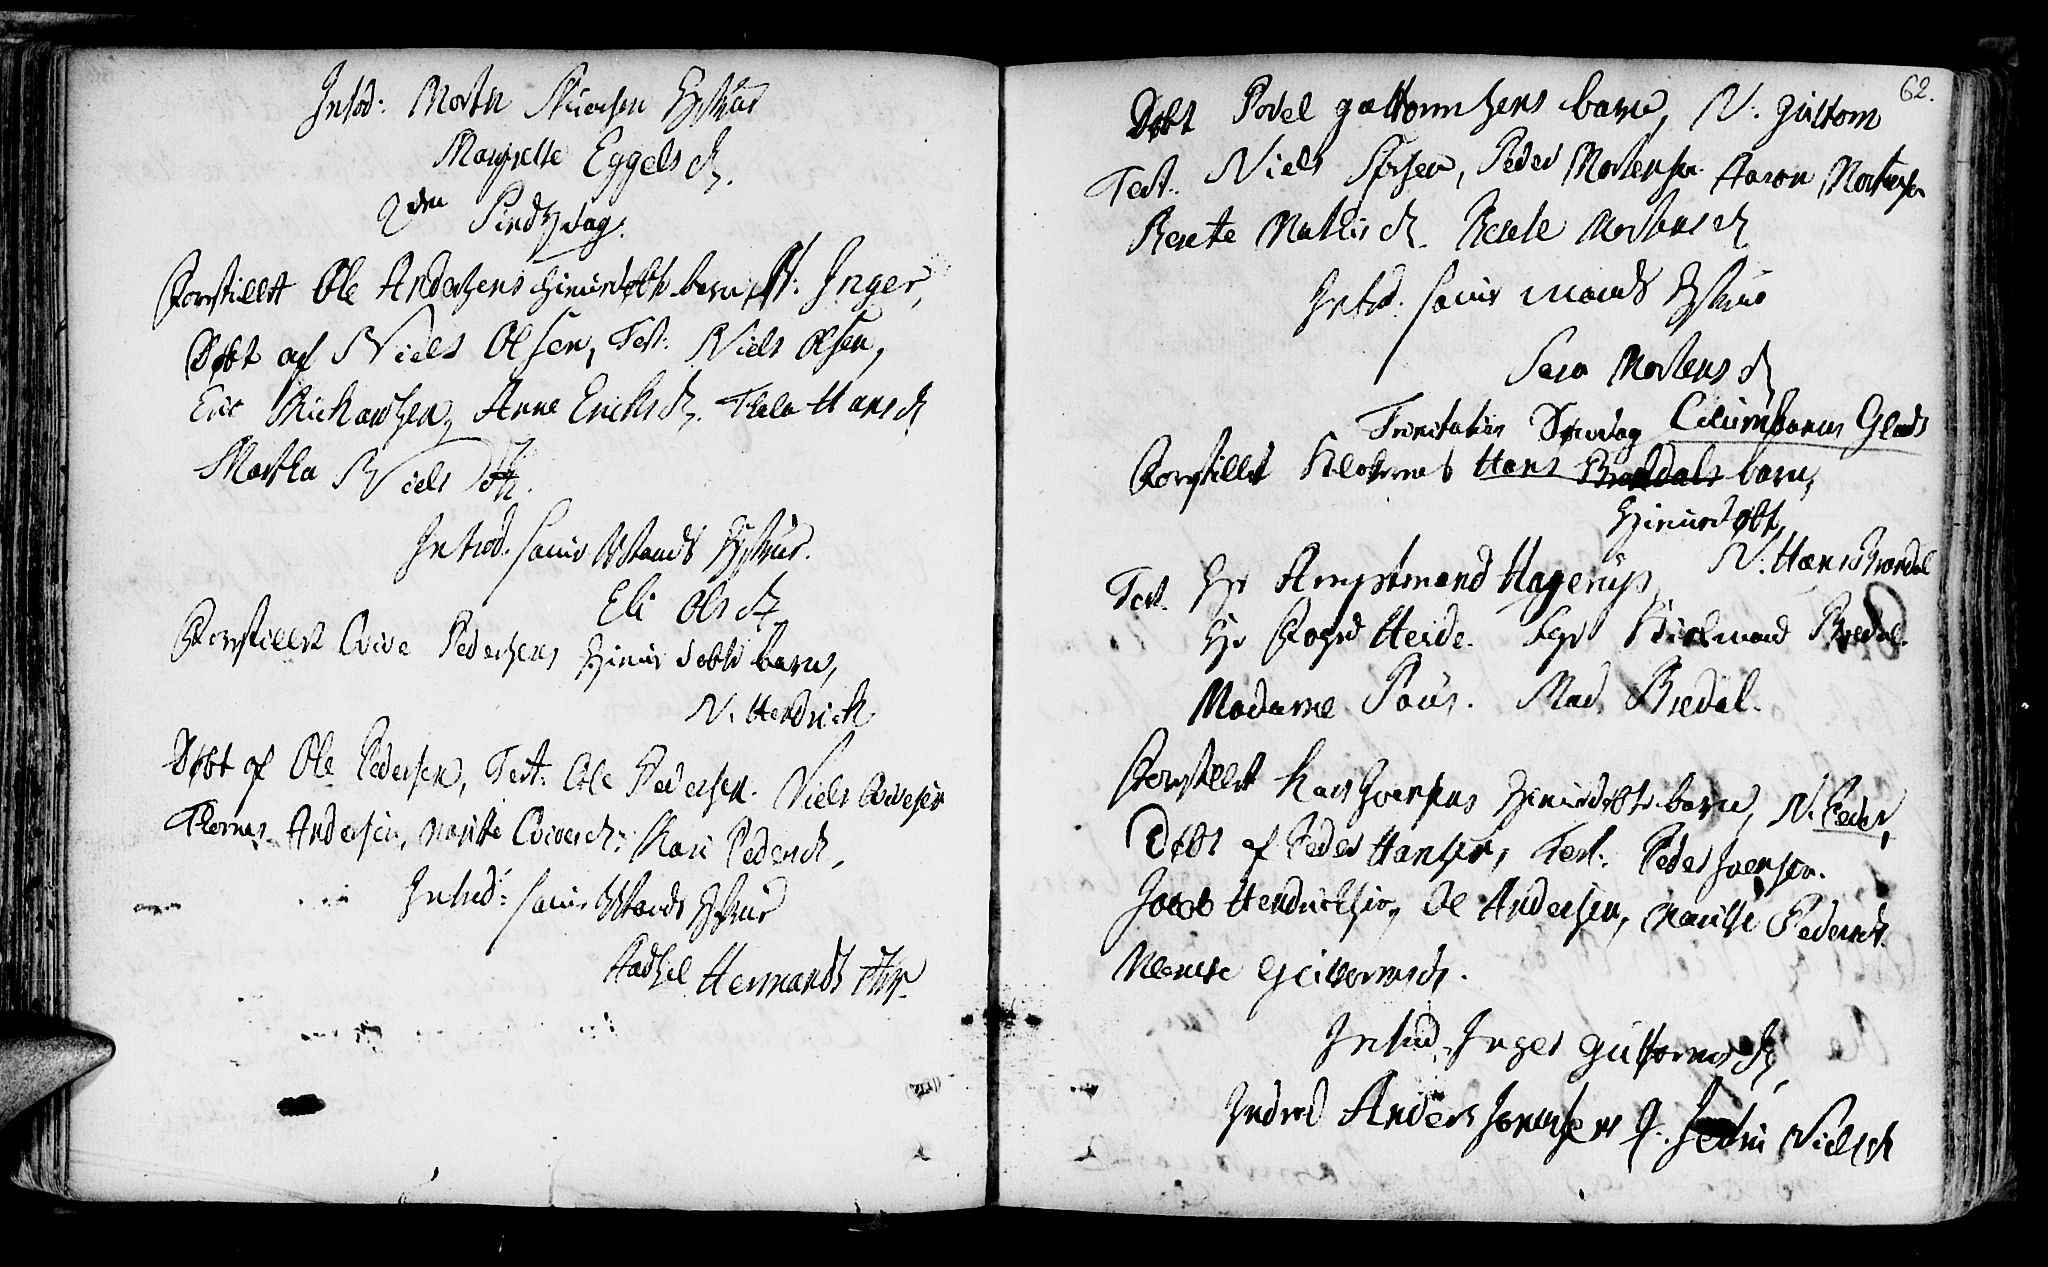 Introd: Morten Hustrue
Marselle Eggelsd.
2den Pindsdag.
Forestillet Ole Andersens hiemedøbte barn, N: Inger,
Døbt af Niels Olsen, Test: Niels Olsen,
Eric Anne Ericksd. Hansd
Martha Niels dtr.
Introd. samme Mands Hustrue.
Eli Olsd.
Forestillet Pedersens hieme døbte barn,
N. Hendrich
Døbt af Ole Pedersen, Test: Ole Pedersen. Niels
Thomas Andersen, Maritte Kari Pedersd,
Introd: samme Mands Hustrue
Hermands dtr.
62.
Døbt Povel guttormsens barn, N: guttom
Test: Niels Peder Mortensen Aaron Mortensen
Berete Mathisd. Berete Mortensd
Introd: samme Mands Hustrue
Sara Mortensd
Trinitatis Søndag Columbanus Glads
Forestillet Klokernes Hans Bredals barn,
hiemedøbt,
N. Hans Bredal
Test. Hr Amptmand Hagerup,
Hr Foged Heide. Hr Bredal.
Madame Paus. Mad. Bredal.
Forestillet Lars Iversens hiemedøbte barn, N. Peder,
Døbt af Peder Hansen, Test: Peder Iversen.
Jacob Hendrichsen, Ole Andersen, Maritte Pedersd.
Merete Guttormsd.
Introd: Inger Guttormsd,
Introd Anders Q. Niels d